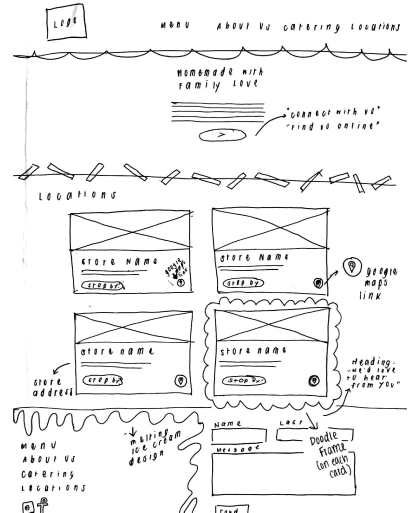 Logo
Menu About Us Catering Locations
Homemade with
Family Love
"Connect with us"
"Find us online"
Locations
Store Name
google
maps
link
Stop by!
Store Name
Stop by
google
maps
link
Store name
Stop by!
Store name
Stop by!
store
address
Heading:
"We'd love
to hear
from you"
melting
ice cream
design
Menu
About Us
Catering
Locations
f
Name
Last
Message
Doodle
Frame
(on each
card)
Send